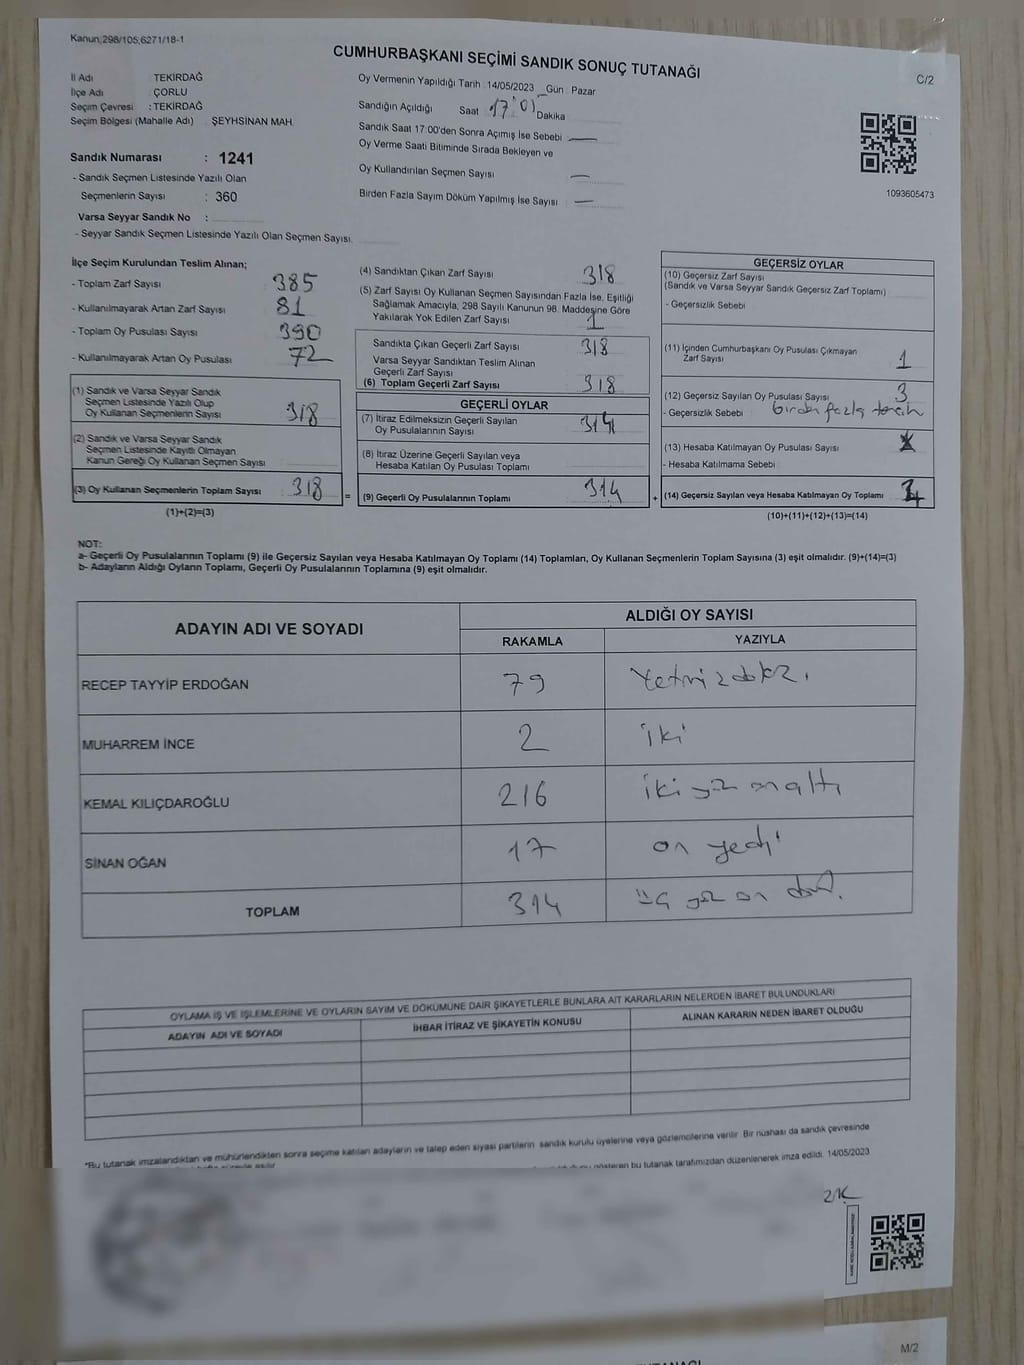 Kanun;298/105;6271/18-1
CUMHURBAŞKANI SEÇİMİ SANDIK SONUÇ TUTANAĞI
C/2
İl Adı TEKİRDAĞ
İlçe Adı : ÇORLU
Seçim Çevresi : TEKİRDAĞ
Seçim Bölgesi (Mahalle Adı) ŞEYHSİNAN MAH.
Sandık Numarası : 1241
- Sandık Seçmen Listesinde Yazılı Olan
Seçmenlerin Sayısı : 360
Varsa Seyyar Sandık No :
- Seyyar Sandık Seçmen Listesinde Yazılı Olan Seçmen Sayısı.
Oy Vermenin Yapıldığı Tarih : 14/05/2023 Gün : Pazar
Sandığın Açıldığı Saat 17:01 Dakika
Sandık Saat 17:00'den Sonra Açımış İse Sebebi —
Oy Verme Saati Bitiminde Sırada Bekleyen ve
Oy Kullandırılan Seçmen Sayısı —
Birden Fazla Sayım Döküm Yapılmış İse Sayısı —
1093605473
İlçe Seçim Kurulundan Teslim Alınan;
- Toplam Zarf Sayısı 385
- Kullanılmayarak Artan Zarf Sayısı 81
- Toplam Oy Pusulası Sayısı 390
- Kullanılmayarak Artan Oy Pusulası 72
(1) Sandık ve Varsa Seyyar Sandık
Seçmen Listesinde Yazılı Olup
Oy Kullanan Seçmenlerin Sayısı 318
(2) Sandık ve Varsa Seyyar Sandık
Seçmen Listesinde Kayıtlı Olmayan
Kanun Gereği Oy Kullanan Seçmen Sayısı
(3) Oy Kullanan Seçmenlerin Toplam Sayısı 318 =
(1)+(2)=(3)
(4) Sandıktan Çıkan Zarf Sayısı 318
(5) Zarf Sayısı Oy Kullanan Seçmen Sayısından Fazla İse, Eşitliği
Sağlamak Amacıyla, 298 Sayılı Kanunun 98. Maddesine Göre
Yakılarak Yok Edilen Zarf Sayısı 1
Sandıkta Çıkan Geçerli Zarf Sayısı 318
Varsa Seyyar Sandıktan Teslim Alınan
Geçerli Zarf Sayısı
(6) Toplam Geçerli Zarf Sayısı 318
GEÇERLİ OYLAR
(7) İtiraz Edilmeksizin Geçerli Sayılan
Oy Pusulalarının Sayısı 314
(8) İtiraz Üzerine Geçerli Sayılan veya
Hesaba Katılan Oy Pusulası Toplamı
(9) Geçerli Oy Pusulalarının Toplamı 314 +
GEÇERSİZ OYLAR
(10) Geçersiz Zarf Sayısı
(Sandık ve Varsa Seyyar Sandık Geçersiz Zarf Toplamı)
- Geçersizlik Sebebi
(11) İçinden Cumhurbaşkanı Oy Pusulası Çıkmayan
Zarf Sayısı 1
(12) Geçersiz Sayılan Oy Pusulası Sayısı 3
- Geçersizlik Sebebi birden fazla tercih
(13) Hesaba Katılmayan Oy Pusulası Sayısı
- Hesaba Katılmama Sebebi
(14) Geçersiz Sayılan veya Hesaba Katılmayan Oy Toplamı
(10)+(11)+(12)+(13)=(14)
NOT:
a- Geçerli Oy Pusulalarının Toplamı (9) ile Geçersiz Sayılan veya Hesaba Katılmayan Oy Toplamı (14) Toplamları, Oy Kullanan Seçmenlerin Toplam Sayısına (3) eşit olmalıdır. (9)+(14)=(3)
b- Adayların Aldığı Oyların Toplamı, Geçerli Oy Pusulalarının Toplamına (9) eşit olmalıdır.
ADAYIN ADI VE SOYADI
ALDIĞI OY SAYISI
RAKAMLA YAZIYLA
RECEP TAYYİP ERDOĞAN 79 Yetmiş dokuz.
MUHARREM İNCE 2 iki
KEMAL KILIÇDAROĞLU 216 iki yüz on altı
SİNAN OĞAN 17 on yedi
TOPLAM 314 üç yüz on dört.
OYLAMA İŞ VE İŞLEMLERİNE VE OYLARIN SAYIM VE DÖKÜMÜNE DAİR ŞİKAYETLERLE BUNLARA AİT KARARLARIN NELERDEN İBARET BULUNDUKLARI
ADAYIN ADI VE SOYADI İHBAR İTİRAZ VE ŞİKAYETİN KONUSU ALINAN KARARIN NEDEN İBARET OLDUĞU
*Bu tutanak imzalandıktan ve mühürlendikten sonra seçime katılan adayların ve talep eden siyasi partilerin sandık kurulu üyelerine veya gözlemcilerine verilir. Bir nüshası da sandık çevresinde
gösteren bu tutanak tarafımızdan düzenlenerek imza edildi. 14/05/2023
M/2